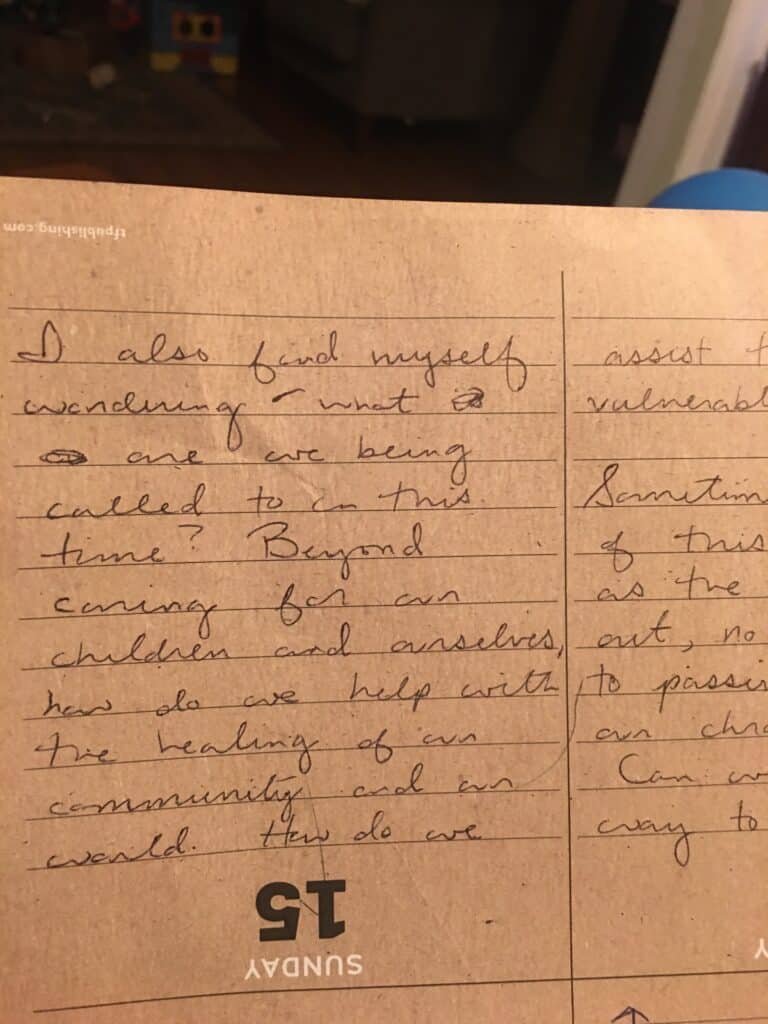 tfpublishing.com
I also find myself
wondering - what
are we being
called to in this
time? Beyond
caring for our
children and ourselves,
how do we help with
the healing of our
community and our
world. How do we
15
SUNDAY
assist t
vulnerabl
Sometim
of this
as the
out, no
to passi
our chr
Can w
way to
Y